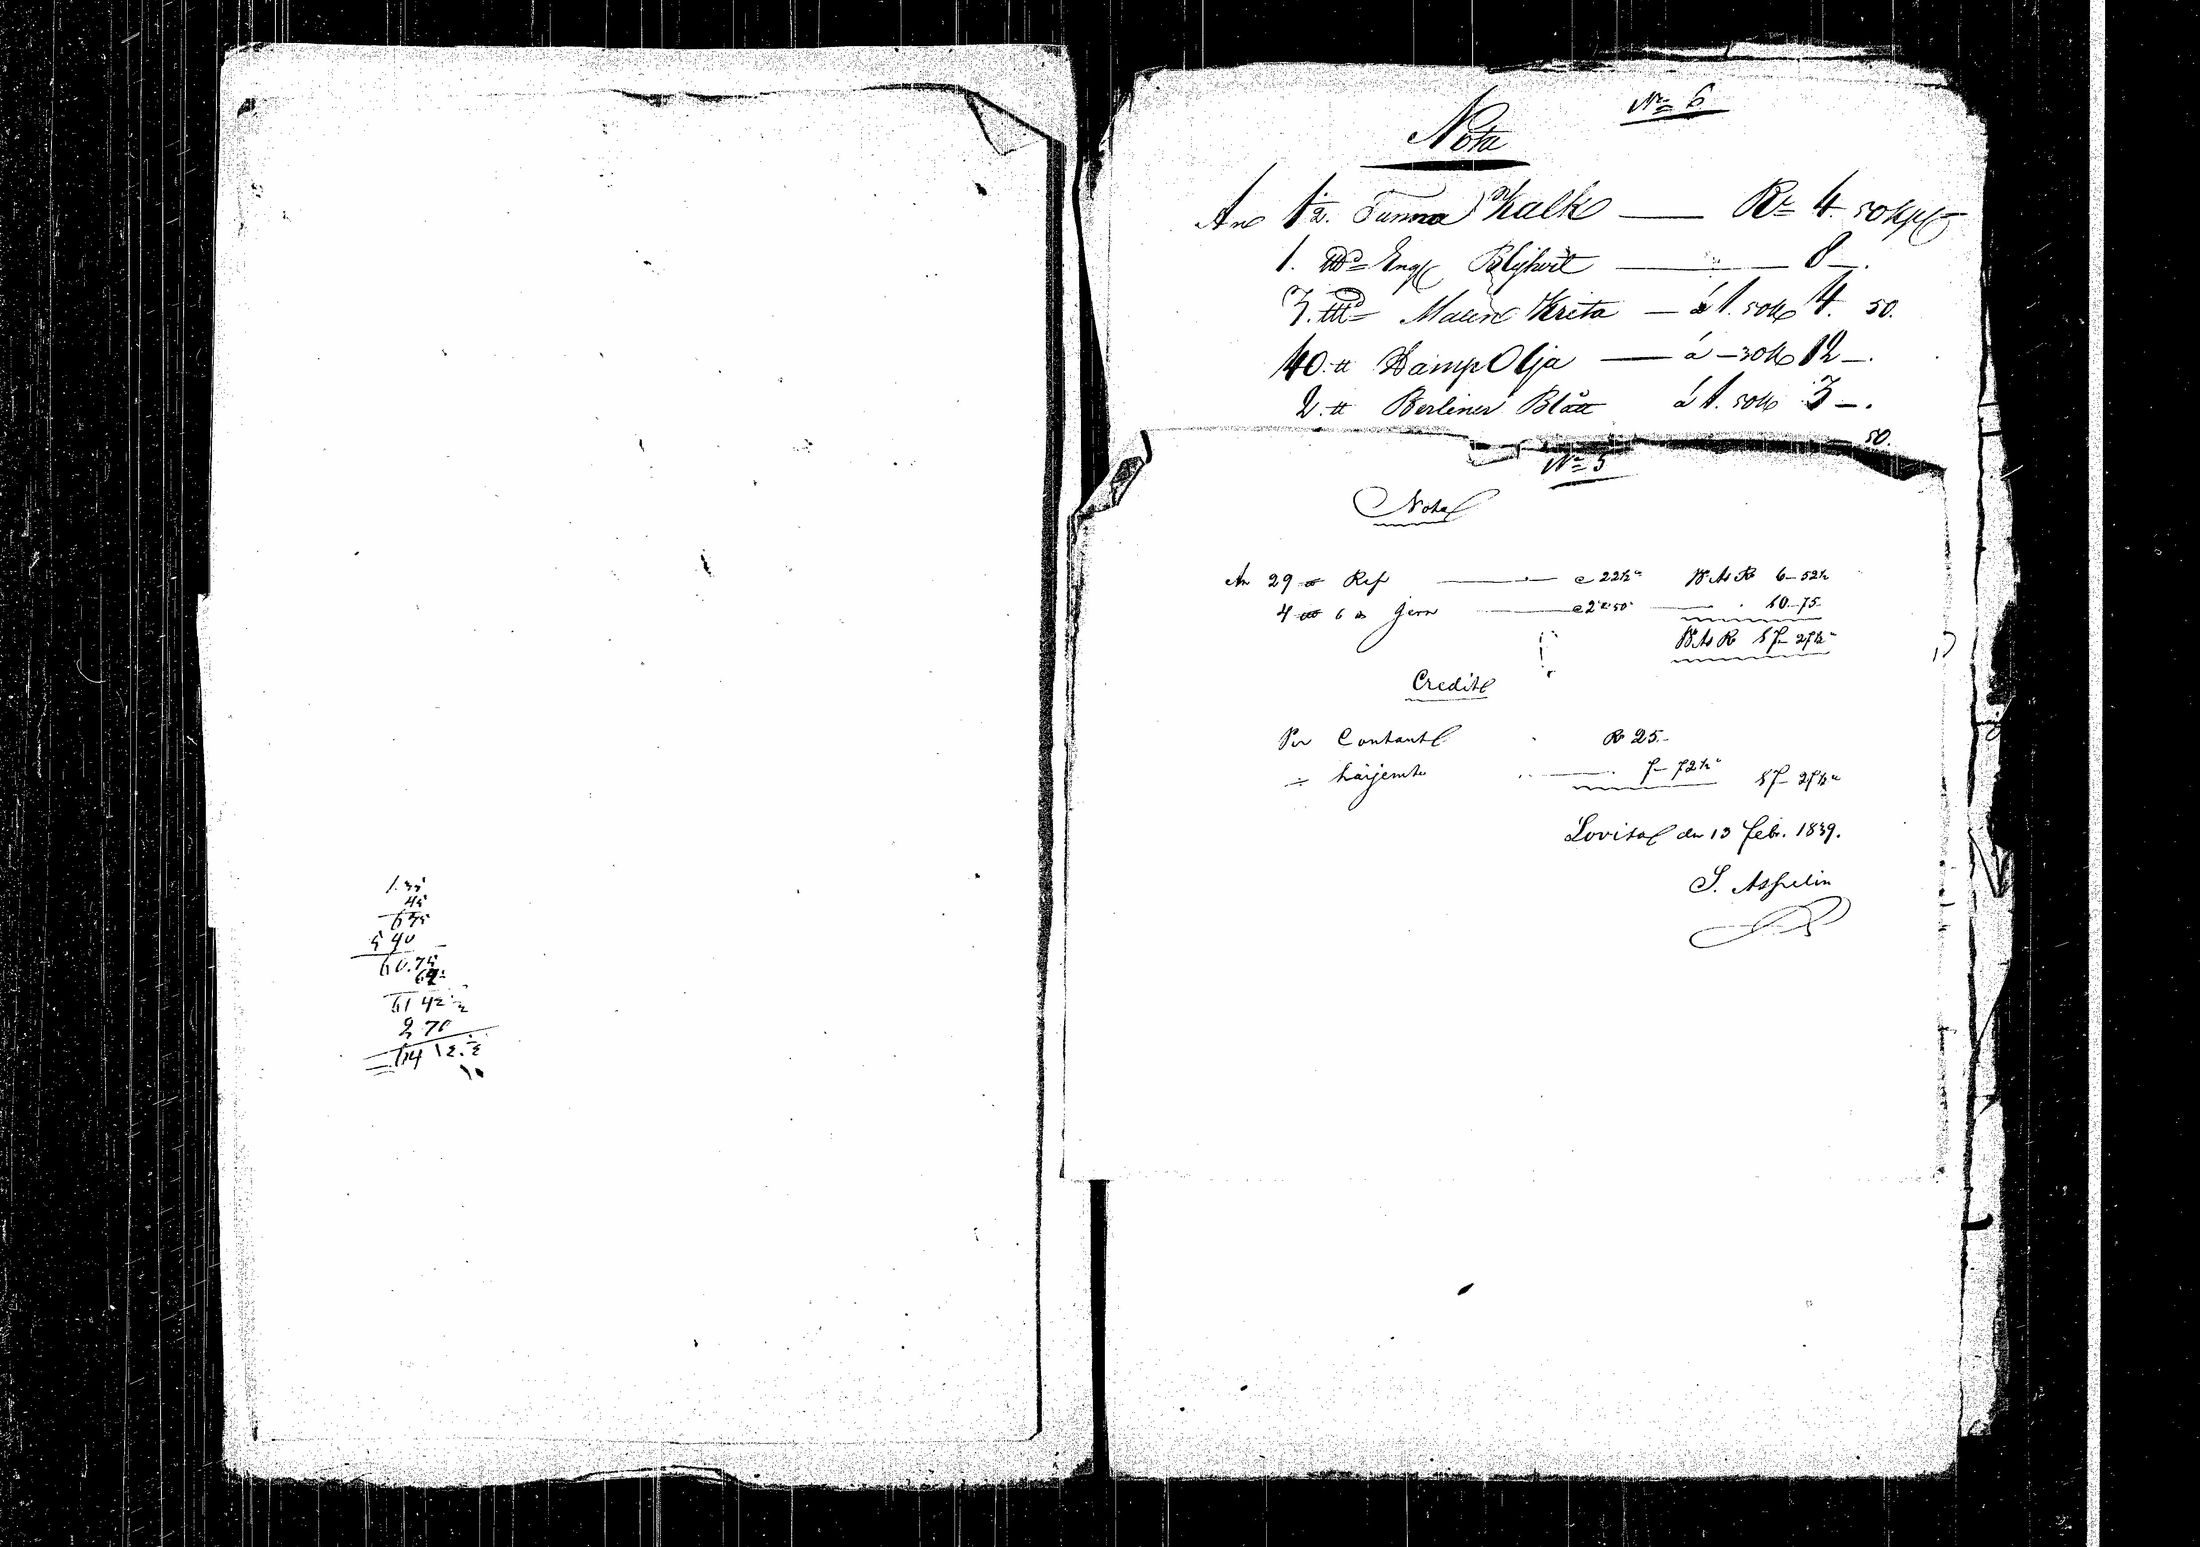 1.35
45
6 75
5 40
60.75
67 ½
61 42 ½
2 70
64 12 ½
No 6
Nota
An 1½. Tunna Kalk — Rr 4. 50 Kpk
1. Engl Blyhvit — 8 —.
3. Malen Krita — á 1. 50 K 4. 50.
40. ℔ HampOlja — á — 30 K 12 —.
2. ℔ Berliner Blått á 1. 50 K 3 —.
50.
No 5
Nota
An 29 Ref — a 22½ B. As R 6 — 52½
4 6 Jern — a 2 R 50 — 10 — 75
B. As R 17 — 27½
Credit
Per Contant R 25 —
÷ härjemte 7 — 72½ 17 — 27½
Lovisa den 13 Feb. 1839.
S. Aspelin